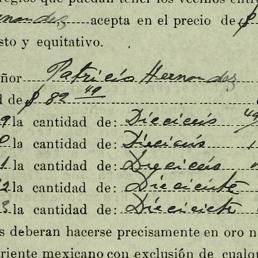 regios que puedan tener los vecinos entre
nandez acepta en el precio de $
sto y equitativo.
ñor Patricio Hernandez
d de $ 82 49
9 la cantidad de: Dieciseis 49
0 la cantidad de: Dieciseis
1 la cantidad de: Dieciseis
2 la cantidad de: Diecisiete
3 la cantidad de: Diecisiete
s deberan hacerse precisamente en oro n
rriente mexicano con exclusión de cualqu